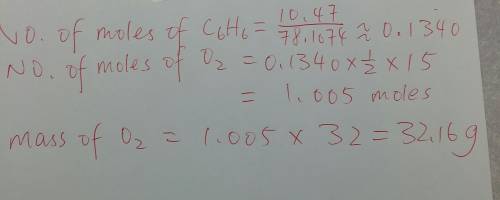 NO. of moles of C6H6 = 10.47/78.1074 ≈ 0.1340
NO. of moles of O2 = 0.1340 × 1/2 × 15
= 1.005 moles
mass of O2 = 1.005 × 32 = 32.16g